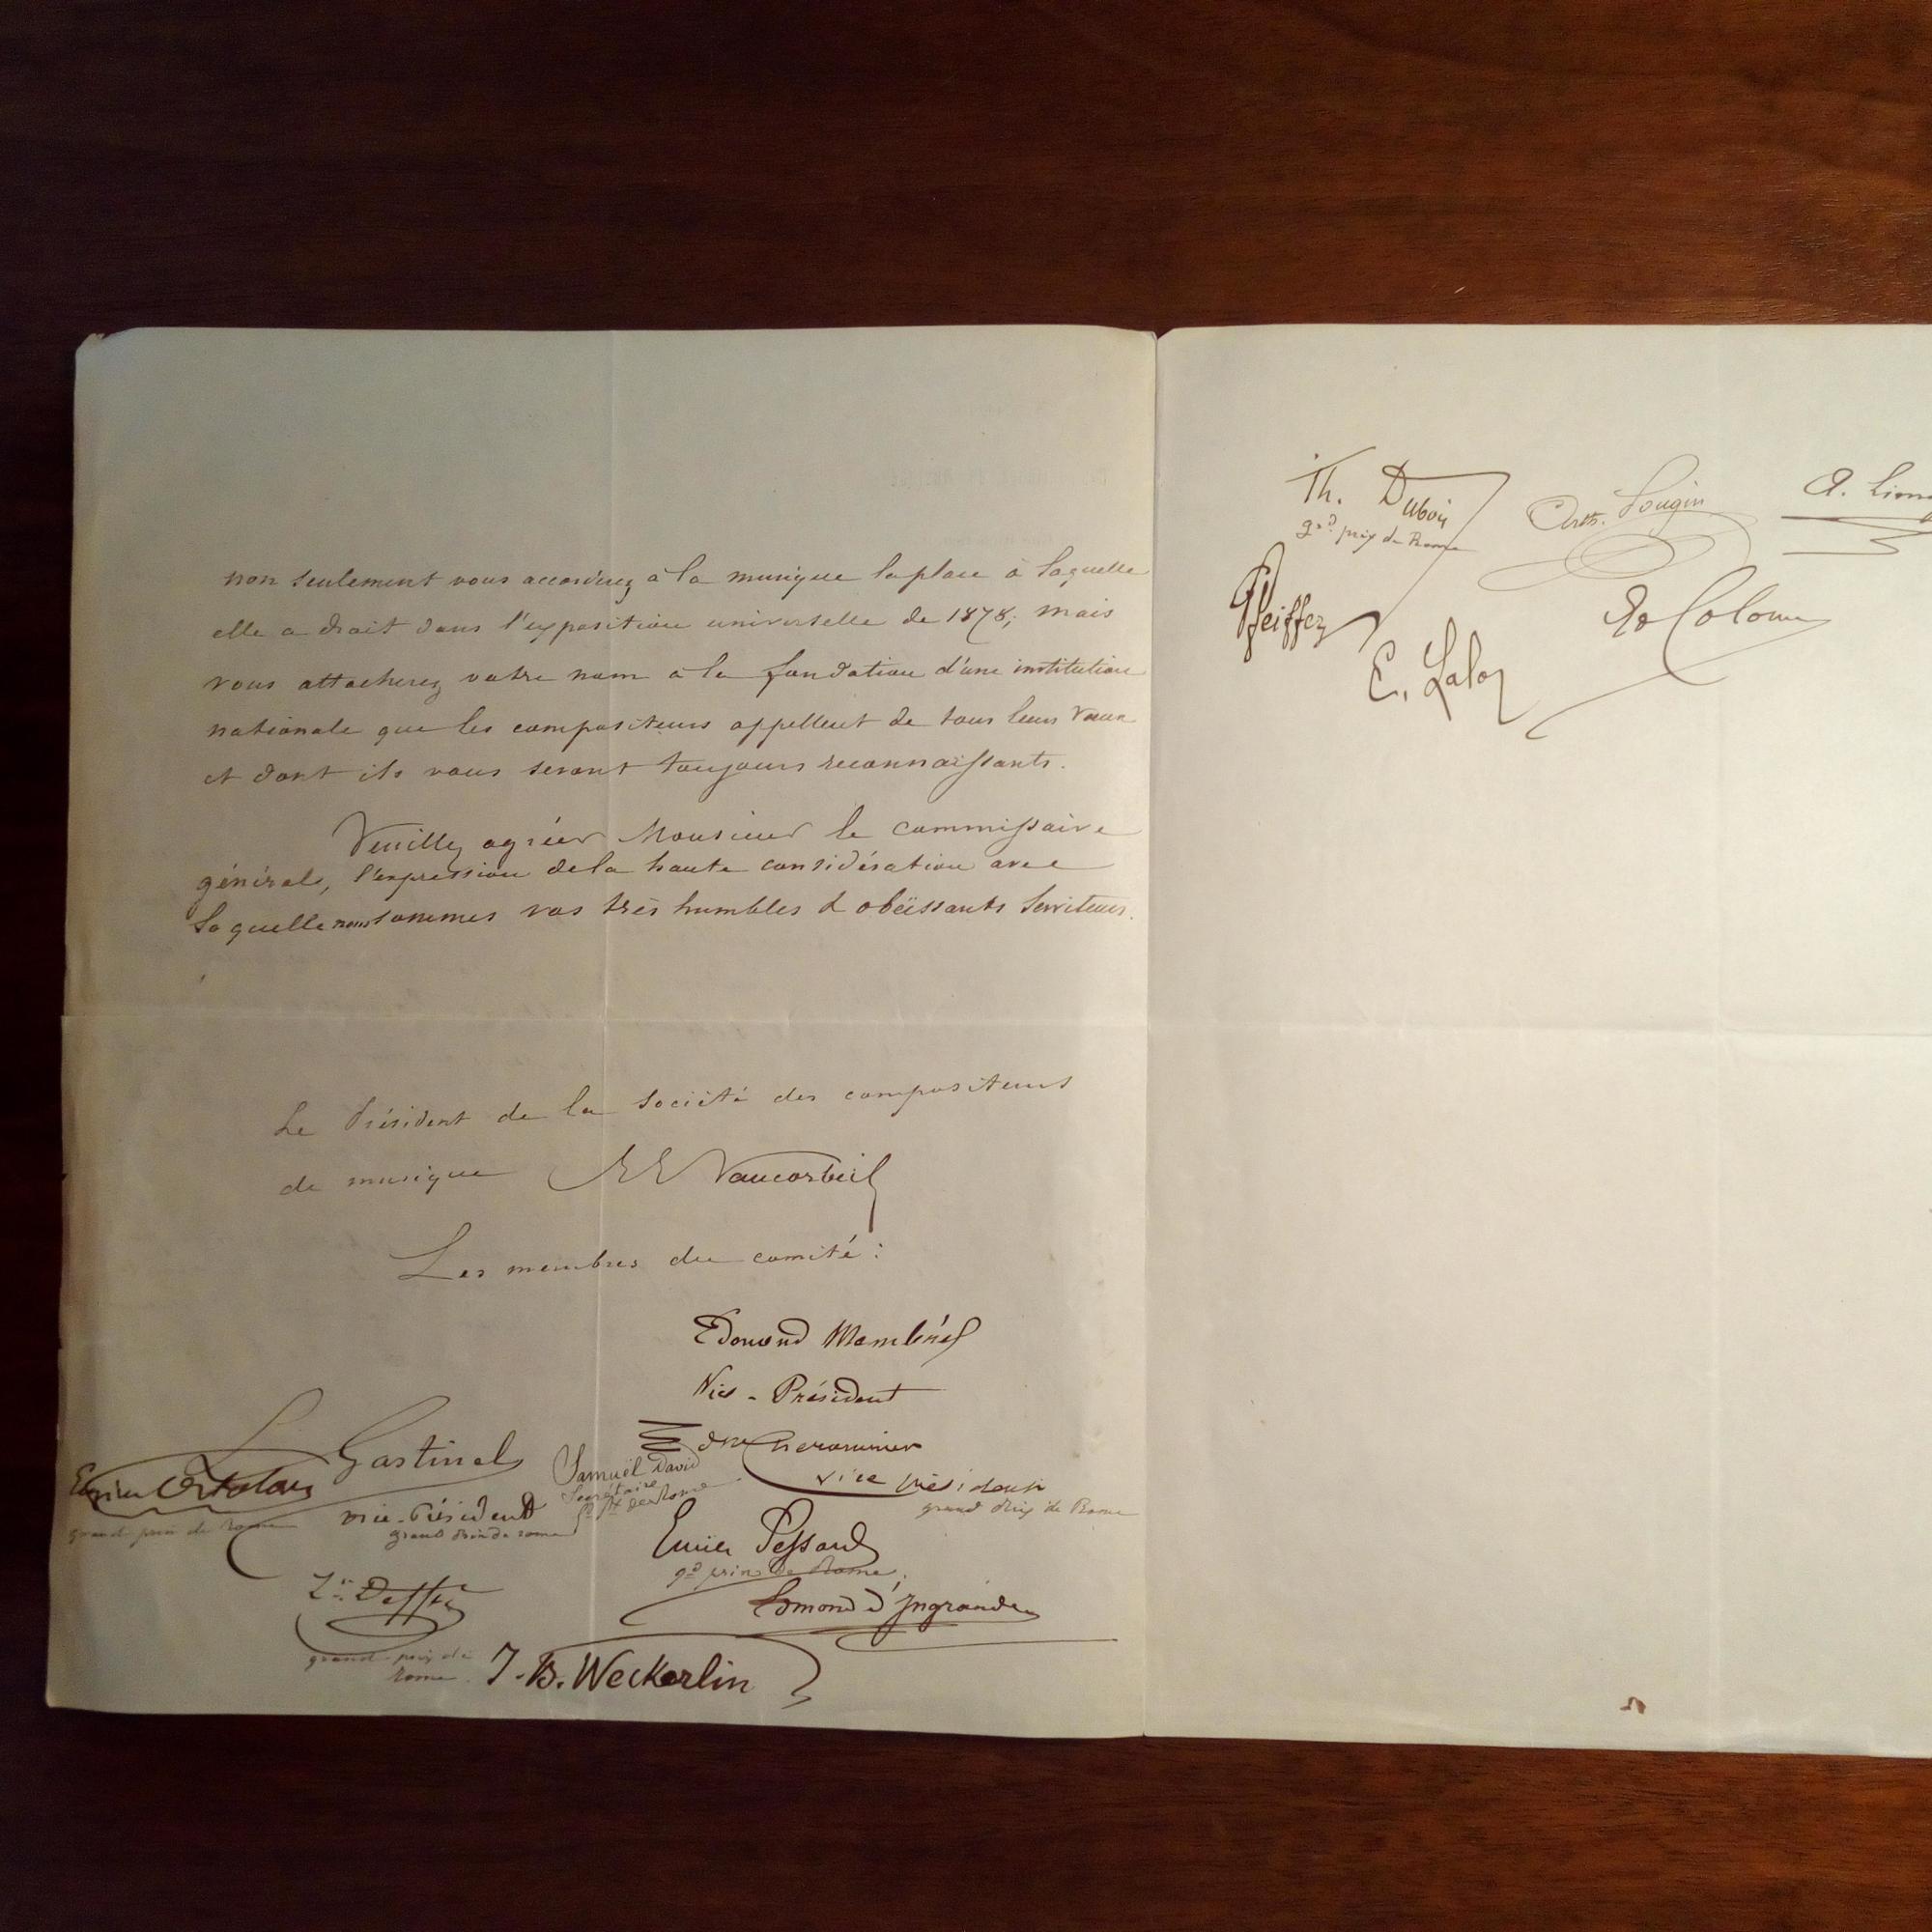 non seulement vous accorderez à la musique la place à laquelle
elle a droit dans l'exposition universelle de 1878; mais
vous attacherez votre nom à la fondation d'une institution
nationale que les compositeurs appellent de tous leurs vœux
et dont ils vous seront toujours reconnaissants.
Veuillez agréer Monsieur le commissaire
général, l'expression de la haute considération avec
laquelle nous sommes vos très humbles & obéissants serviteurs.
Le Président de la société des compositeurs
de musique Vaucorbeil
Les membres du comité :
Edmond Membrée
Vice-Président
vice président
grand prix de Rome
L Gastinel
vice-Président
grand prix de rome
Samuël David
Secrétaire
Gd Px de Rome
Eugène Ortolan
grand prix de Rome
Emile Pessard
gd prix de Rome
Edmond d'Ingrande
Lt. Deffès
grand prix de
Rome
J.B. Weckerlin
Th. Dubois
gd prix de Rome
Arth. Pougin
A. Limn
Pfeiffer
E. Lalo
Ed Colonne